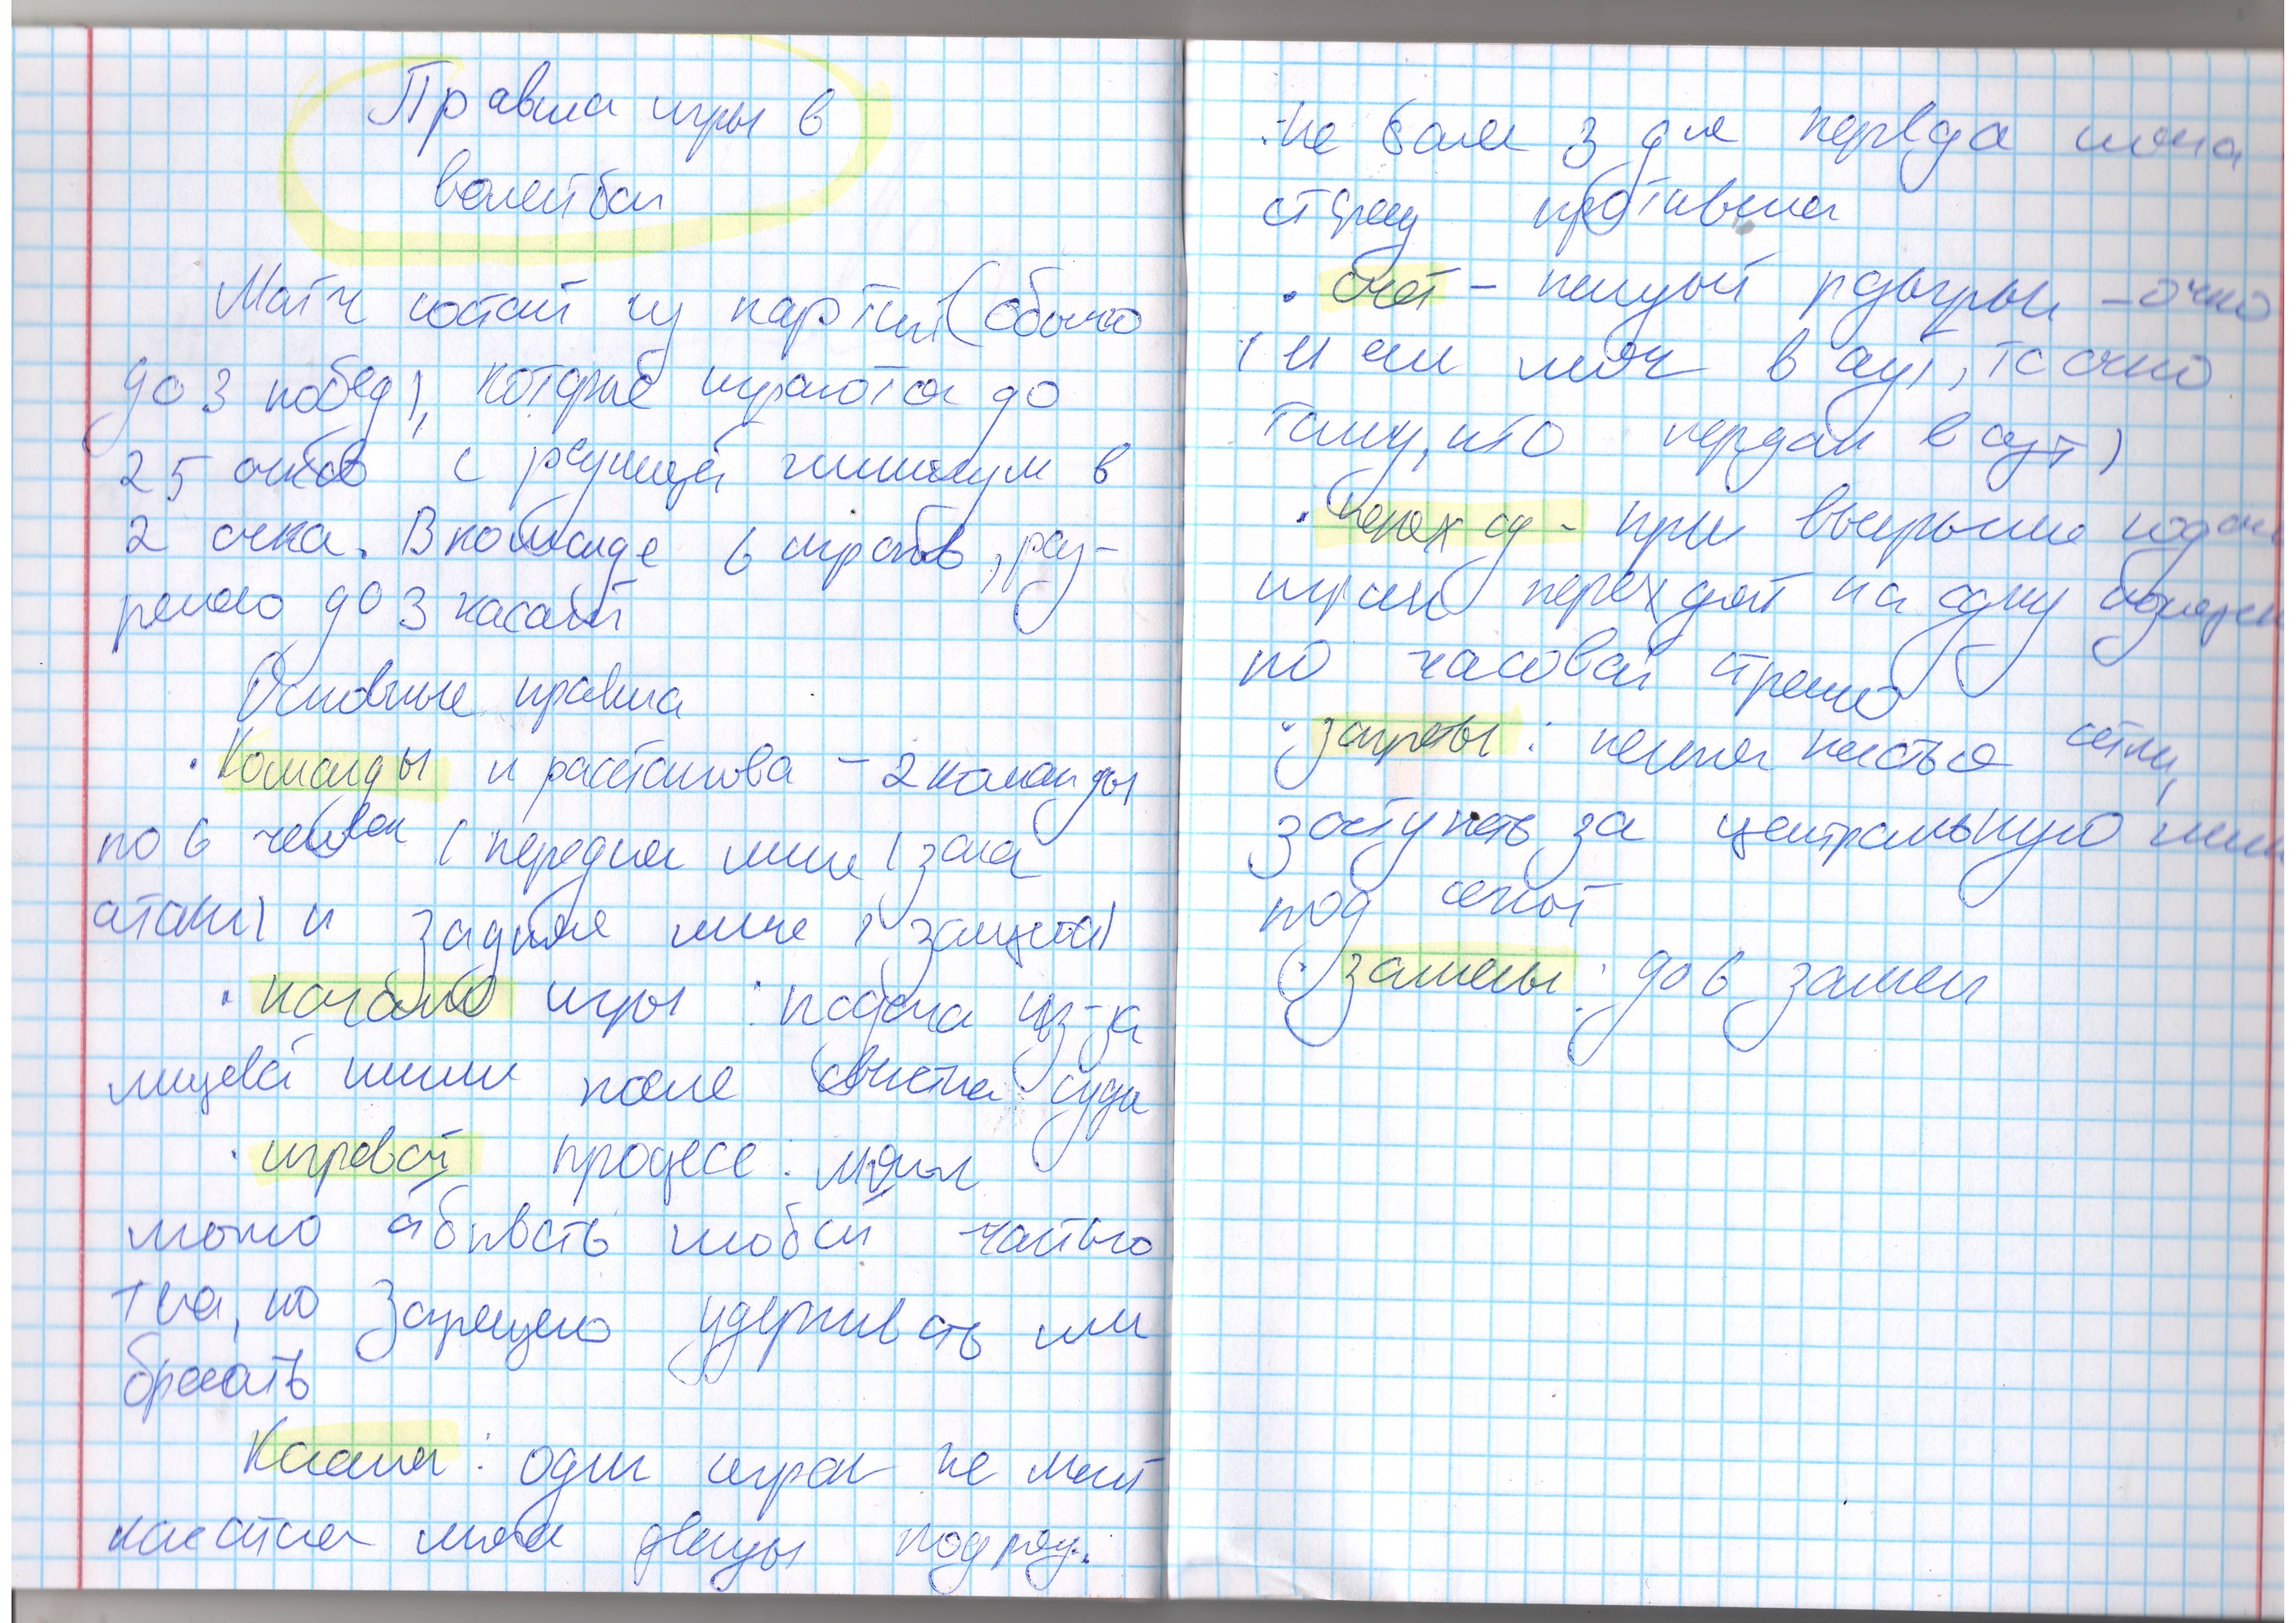 Правила игры в
волейбол
Матч состоит из партий (обычно
до 3 побед), которые играются до
25 очков с разницей минимум в
2 очка. В команде 6 игроков, раз-
решено до 3 касаний
Основные правила
• Команды и расстановка – 2 команды
по 6 человек (передняя линия (зона
атаки) и задняя линия (защита)
• начало игры: подача из-за
лицевой линии после свистка судьи
• игровой процесс: мячом
можно отбивать любой частью
тела, но запрещено удерживать или
бросать
Касания: один игрок не может
касаться мяча дважды подряд.
Не более 3 для перевода мяча
сторону противника
• счёт – каждый розыгрыш – очко
(если мяч в аут, то очко
тому, кто передал в аут)
• Переход – при выигрыше подачи
игроки переходят на одну позицию
по часовой стрелке
• запреты: нельзя касаться сетки,
заступать за центральную линию
под сеткой
• замены: до 6 замен